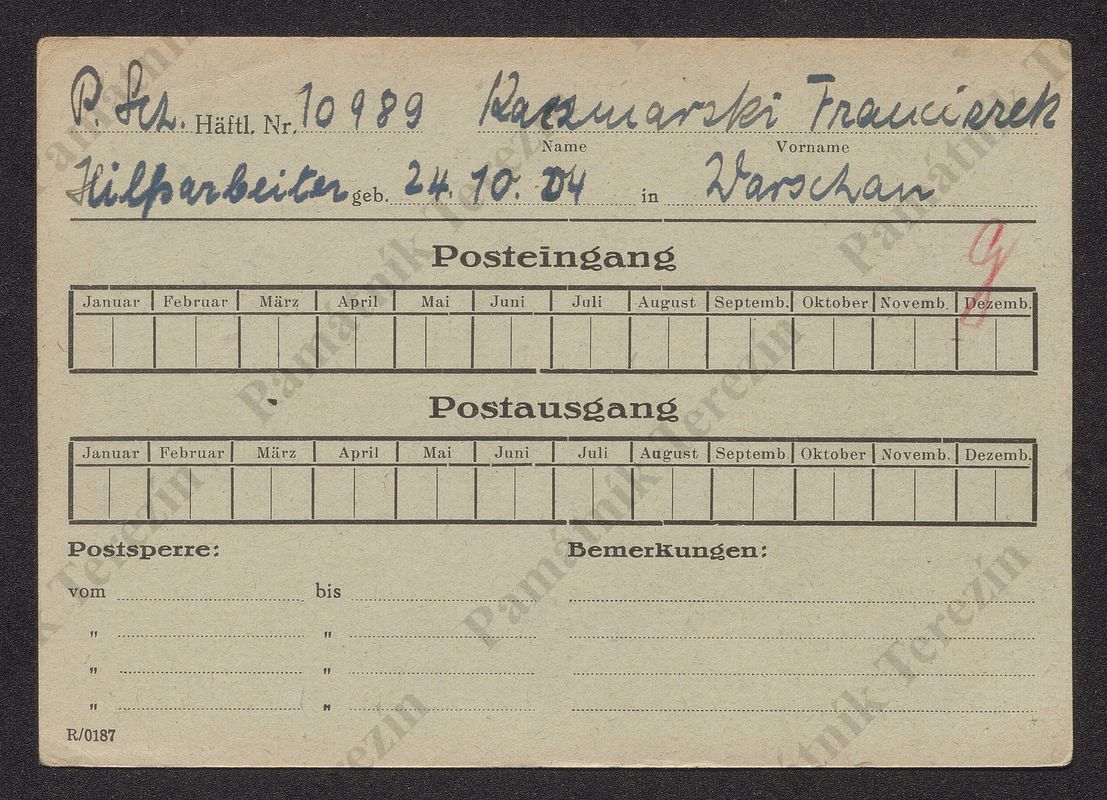 P. Sch. Häftl. Nr. 10989 Kaczmarski Franciszek
Name Vorname
Hilfsarbeiter geb. 24. 10. 04 in Warschau
Posteingang
Januar Februar März April Mai Juni Juli August Septemb. Oktober Novemb. Dezemb.
Postausgang
Januar Februar März April Mai Juni Juli August Septemb. Oktober Novemb. Dezemb.
Postsperre: Bemerkungen:
vom bis
" "
" "
" "
R/0187
Památník Terezín